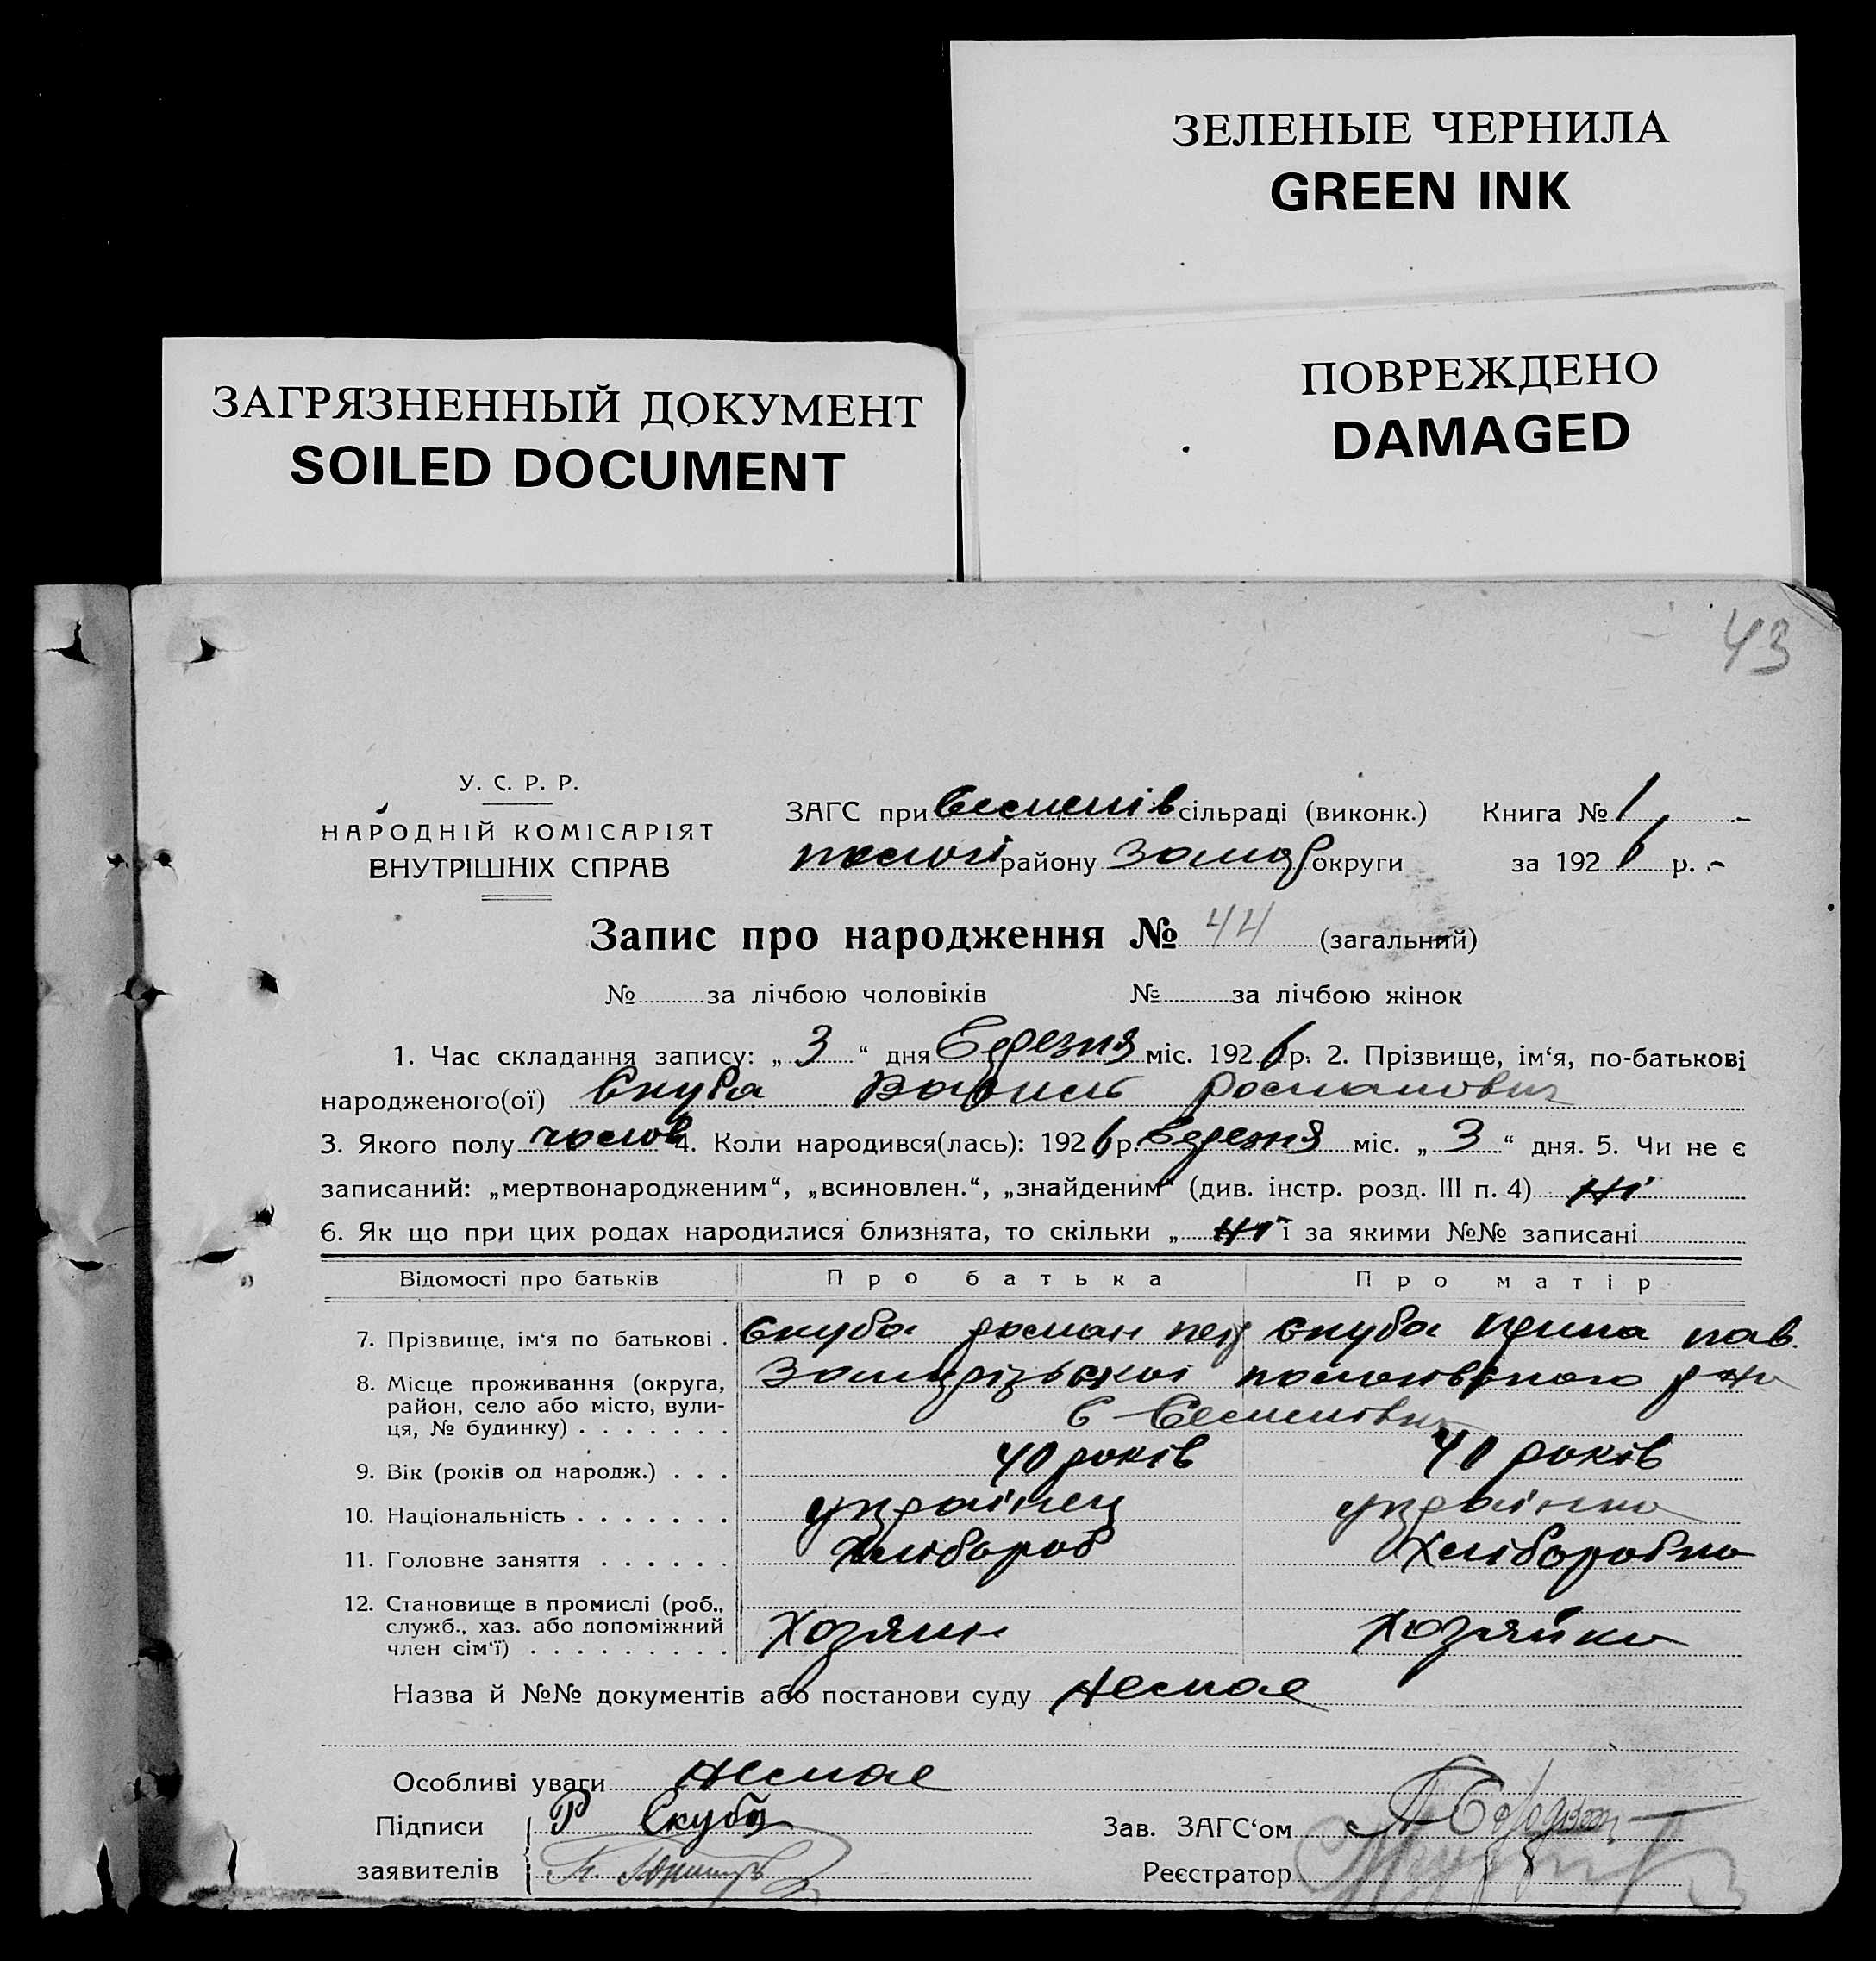 ЗЕЛЕНЫЕ ЧЕРНИЛА
GREEN INK
ПОВРЕЖДЕНО
DAMAGED
ЗАГРЯЗНЕННЫЙ ДОКУМЕНТ
SOILED DOCUMENT
43
У. С. Р. Р.
НАРОДНІЙ КОМІСАРІЯТ
ВНУТРІШНІХ СПРАВ
ЗАГС при сільраді (виконк.) Книга № 1
району округи за 1926 р.
Запис про народження № 44 (загальний)
№ за лічбою чоловіків № за лічбою жінок
1. Час складання запису: „ 3 “ дня Березня міс. 1926 р. 2. Прізвище, ім‘я, по-батькові
народженого(ої) Скуба Романович
3. Якого полу чолов 4. Коли народився(лась): 1926 р. Березня міс. „ 3 “ дня. 5. Чи не є
записаний: „мертвонародженим“, „всиновлен.“, „знайденим“ (див. інстр. розд. III п. 4) Ні
6. Як що при цих родах народилися близнята, то скільки „ Ні і за якими №№ записані
Відомості про батьків Про батька Про матір
7. Прізвище, ім‘я по батькові . Скуба Роман Скуба пав.
8. Місце проживання (округа,
район, село або місто, вули-
ця, № будинку) . . . . . . .
9. Вік (років од народж.) . . . 40 років 40 років
10. Національність . . . . . . . українець українка
11. Головне заняття . . . . . . хлібороб хліборобка
12. Становище в промислі (роб.,
служб., хаз. або допоміжний
член сім‘ї) . . . . . . . . . Хозяин Хозяйка
Назва й №№ документів або постанови суду Немає
Особливі уваги Немає
Підписи Р Скуба Зав. ЗАГС‘ом
заявителів Реєстратор